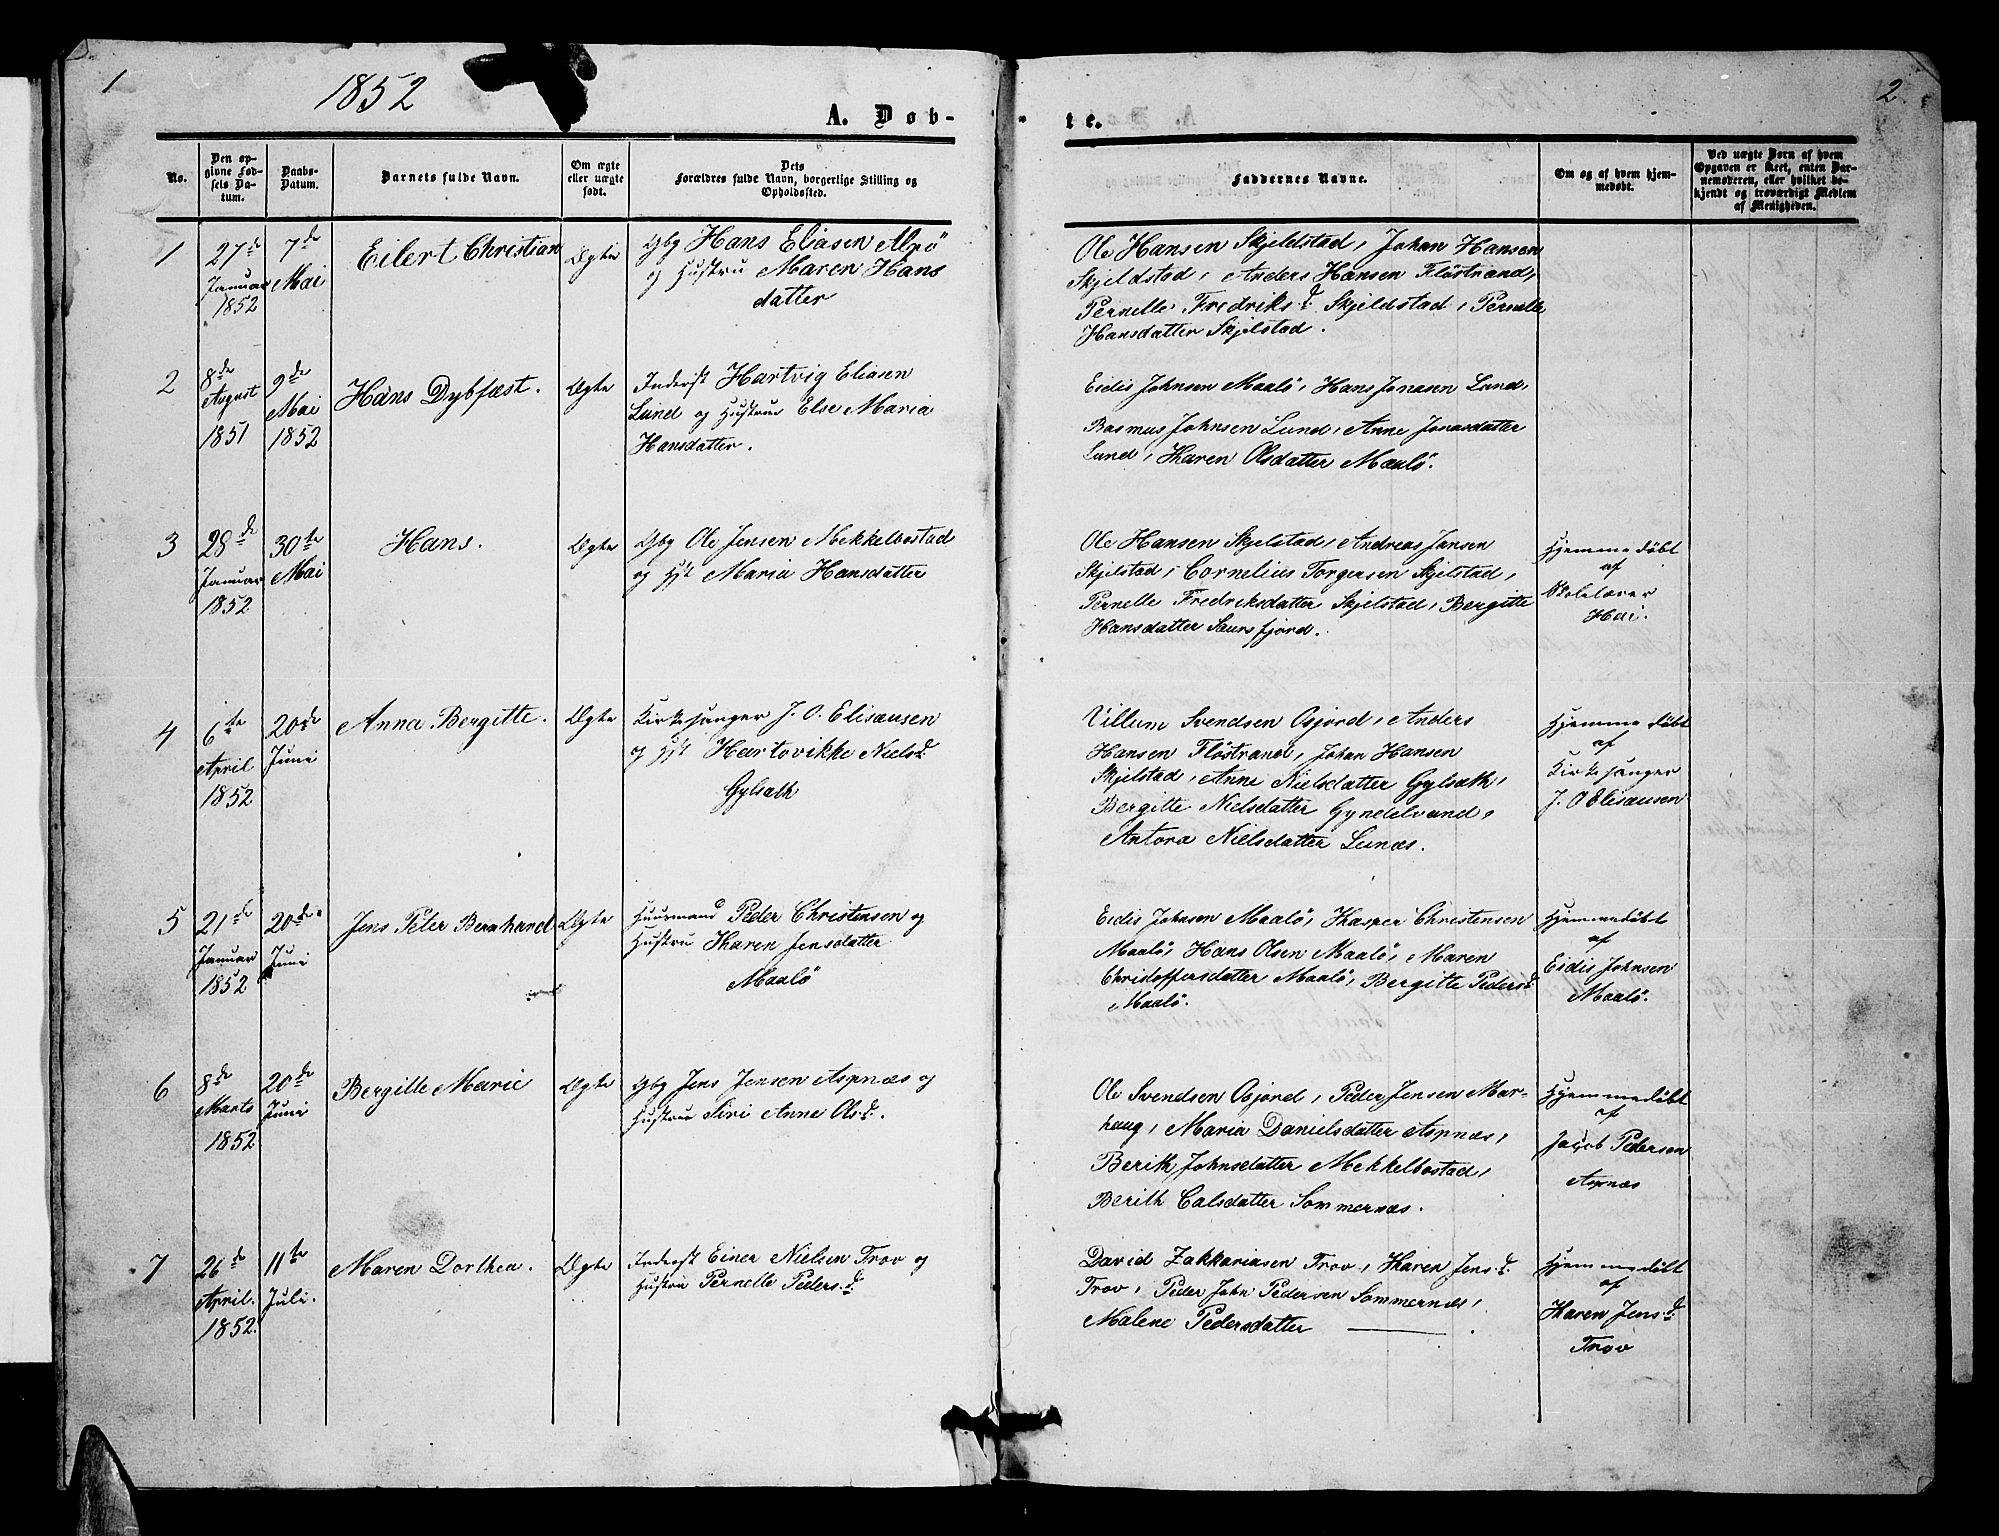 1
1852
A. Døb-
te.
2.
No.
Den op-
givne Fød-
sels Da-
tum.
Daabs-
Datum.
Barnets fulde Navn.
Om ægte
eller uægte
født.
Dets
Forældres fulde Navn, borgerlige Stilling og
Opholdssted.
Faddernes Navne.
Om og af hvem hjem-
medøbt.
Ved uægte Børn af hvem
Opgaven er skeet, enten Bar-
nemoderen, eller hvilket be-
kjendt og troværdigt Medlem
af Menigheden.
1
27de
Januar
1852
7de
Mai
Eilert Christian
Ægte
Gbg Hans Eliasen Alpö
og Hustru Maren Hans
datter
Ole Hansen Skjeldstad, Johan Hansen
Skjeldstad, Anders Hansen Flöstrand,
Pernelle Fredriksd. Skjeldstad, Pernelle
Hansdatter Skjelstad.
2
8de
August
1851
9de
Mai
1852
Hans Dybfæst.
Ægte
Inderst Hartvig Eliasen
Lund og Hustrue Else Maria
Hansdatter.
Eidis Johnsen Maalö, Hans Jonasn Lund,
Rasmus Johnsen Lund, Anne Jonasdatter
Lund, Karen Olsdatter Maalö.
3
28de
Januar
1852
30te
Mai
Hans.
Ægte
Gbg Ole Jensen Mekkelbostad
og Hst Maria Hansdatter
Ole Hansen Skjelstad, Andreas Jansen
Skjelstad, Cornelius Torgersen Skjelstad,
Pernelle Fredriksdatter Skjelstad, Bergitte
Hansdatter Saursfjord.
Hjemmedöbt
af
Skolelærer
Hoi.
4
6te
April
1852
20de
Juni
Anna Bergitte.
Ægte
Kirkesanger J. O. Elisæusen
og Hst Hartvikke Nielsd.
Gylsath
Villum Svendsen Osjord, Anders
Hansen Flöstrand, Johan Hansen
Skjelstad, Anne Nielsdatter Gylsath,
Bergitte Nielsdatter Gyndelvand,
Antora Nielsdatter Lunæs.
Hjemmedöbt
af
Kirkesanger
J. O Elisæusen
5
21de
Januar
1852
20de
Juni
Jens Peter Bernhard
Ægte
Huusmand Peder Christensen og
Hustru Karen Jensdatter
Maalö
Eidis Johnsen Maalö, Kasper Christensen
Maalö, Hans Olsen Maalö, Maren
Christoffersdatter Maalö, Bergitte Pedersd.
Maalö.
Hjemmedöbt
af
Eidis Johnsen
Maalö.
6
8de
Marts
1852
20de
Juni
Bergitte Marie
Ægte
Gbg Jens Jensen Aspnæs og
Hustrue Siri Anne Olsd.
Ole Svendsen Osjord, Peder Jensen Mar-
haug, Maria Danielsdatter Aspnæs,
Berith Johnsdatter Mekkelbostad,
Berith Calsdatter Sommernæs.
Hjemmedöbt
af
Jacob Pedersen
Aspnæs
7
26de
April.
1852.
11te
Juli.
Maren Dorthea.
Ægte
Inderst Einer Nielsen Trov og
Hustru Pernelle Pedersd.
David Zakkariasen Trov, Karen Jensd.
Trov, Peder John Pedersen Sommernæs,
Malene Pedersdatter
Hjemmedöbt
af
Karen Jensd.
Trov